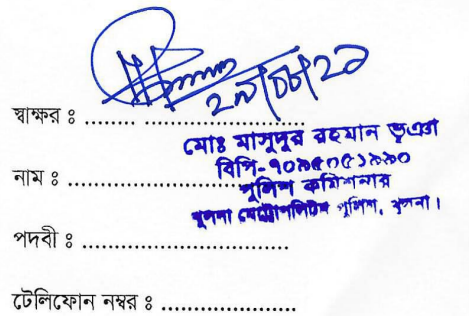 স্বাক্ষর ঃ ........
মোঃ মাসুদুর রহমান ভূঞা
বিপি-৭০৯৫০৫১৯৯০
নাম ঃ ..................
পুলিশ কমিশনার
খুলনা মেট্রোপলিটন পুলিশ, খুলনা।
পদবী ঃ ...........................
টেলিফোন নম্বর ঃ ..................